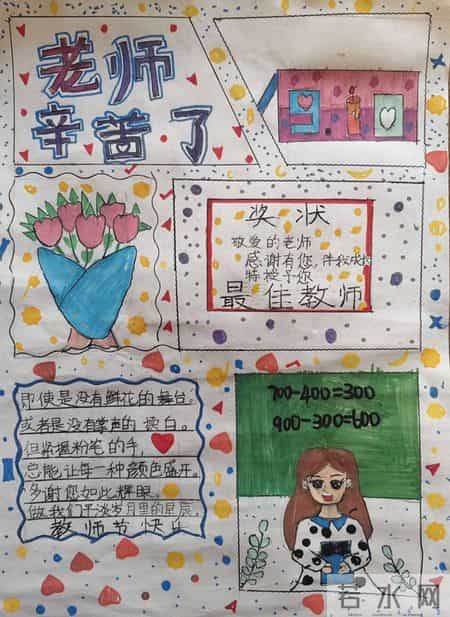 老师
辛苦了
9.10
奖状
敬爱的老师
感谢有您,伴我成长
特授予您
最佳教师
即使是没有鲜花的舞台。
或者是没有掌声的
但紧握粉笔的手,
总能让每一种颜色盛开,
多谢您如此耀眼,
做我们平淡岁月里的星辰,
教师节快乐
700-400=300
900-300=600
若水网